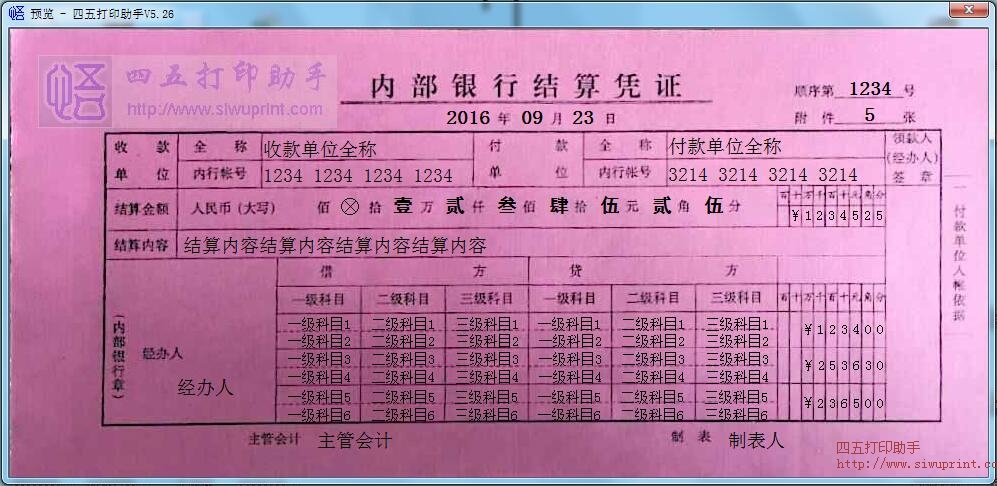 预览 - 四五打印助手V5.26
四五打印助手
http://www.siwuprint.com
内部银行结算凭证
顺序第 1234 号
2016 年 09 月 23 日
附件 5 张
收款 全称 收款单位全称 付款 全称 付款单位全称 领款人
单位 内行帐号 1234 1234 1234 1234 单位 内行帐号 3214 3214 3214 3214 (经办人)
签章
百十万千百十元角分
结算金额 人民币(大写) 佰 ⊗ 拾 壹 万 贰 仟 叁 佰 肆 拾 伍 元 贰 角 伍 分 ¥1234525
结算内容 结算内容结算内容结算内容结算内容
借方 贷方
一级科目 二级科目 三级科目 一级科目 二级科目 三级科目 百十万千百十元角分
一级科目1 二级科目1 三级科目1 一级科目1 二级科目1 三级科目1 ¥123400
一级科目2 二级科目2 三级科目2 一级科目2 二级科目2 三级科目2
一级科目3 二级科目3 三级科目3 一级科目3 二级科目3 三级科目3 ¥253630
一级科目4 二级科目4 三级科目4 一级科目4 二级科目4 三级科目4
一级科目5 二级科目5 三级科目5 一级科目5 二级科目5 三级科目5 ¥236500
一级科目6 二级科目6 三级科目6 一级科目6 二级科目6 三级科目6
(内部银行章)
经办人
经办人
一付款单位入帐依据
主管会计 主管会计 制表 制表人
四五打印助手
http://www.siwuprint.co